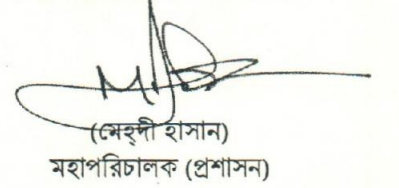 (মেহ্দী হাসান)
মহাপরিচালক (প্রশাসন)